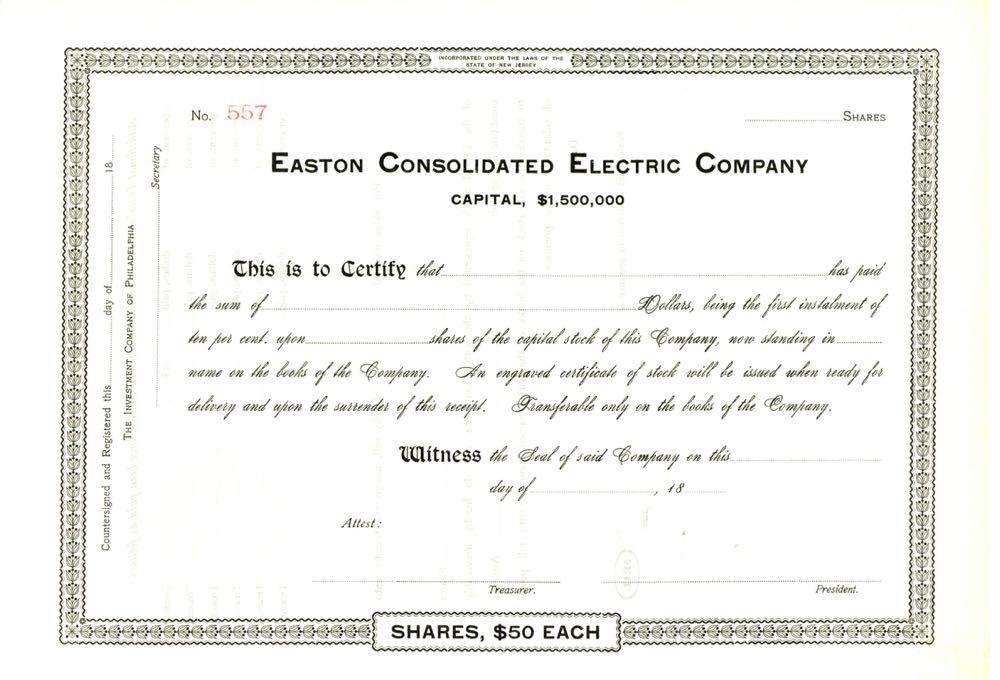 INCORPORATED UNDER THE LAWS OF THE
STATE OF NEW JERSEY
No. 557
SHARES
EASTON CONSOLIDATED ELECTRIC COMPANY
CAPITAL, $1,500,000
This is to Certify that has paid
the sum of Dollars, being the first instalment of
ten per cent. upon shares of the capital stock of this Company, now standing in
name on the books of the Company. An engraved certificate of stock will be issued when ready for
delivery and upon the surrender of this receipt. Transferable only on the books of the Company.
Witness the Seal of said Company on this
day of , 18
Attest:
Treasurer. President.
SHARES, $50 EACH
Countersigned and Registered this day of 18
THE INVESTMENT COMPANY OF PHILADELPHIA
Secretary